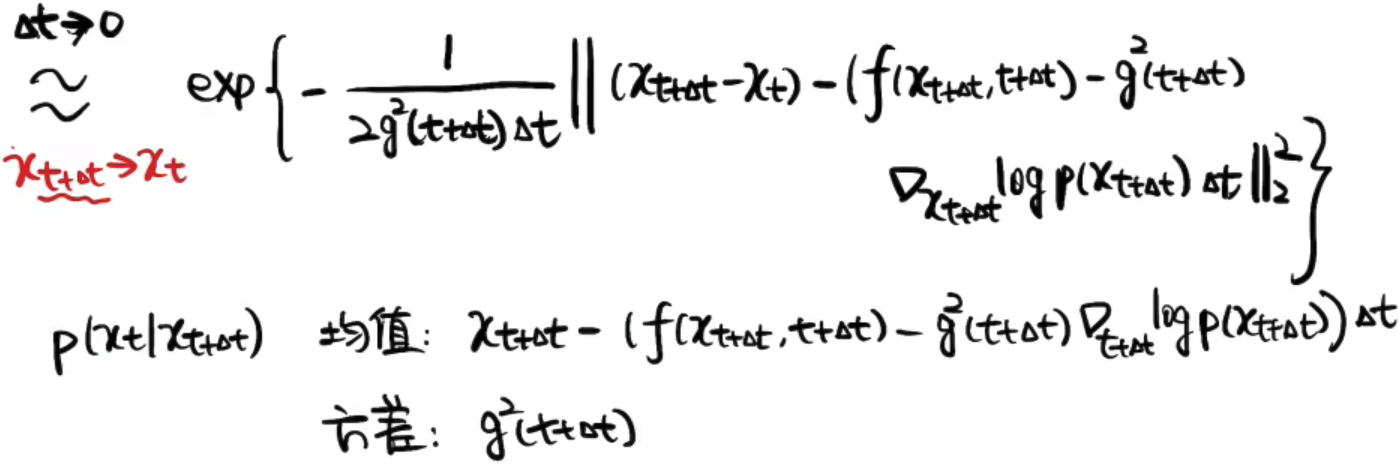 Δt→0
≈ exp{ - 1/(2g²(t+Δt)Δt) ‖(x_{t+Δt}-x_t) - (f(x_{t+Δt}, t+Δt) - g²(t+Δt)
x_{t+Δt}→x_t
∇_{x_{t+Δt}} log p(x_{t+Δt}) Δt‖₂² }
p(x_t|x_{t+Δt}) 均值: x_{t+Δt} - (f(x_{t+Δt}, t+Δt) - g²(t+Δt) ∇_{t+Δt} log p(x_{t+Δt})) Δt
方差: g²(t+Δt)